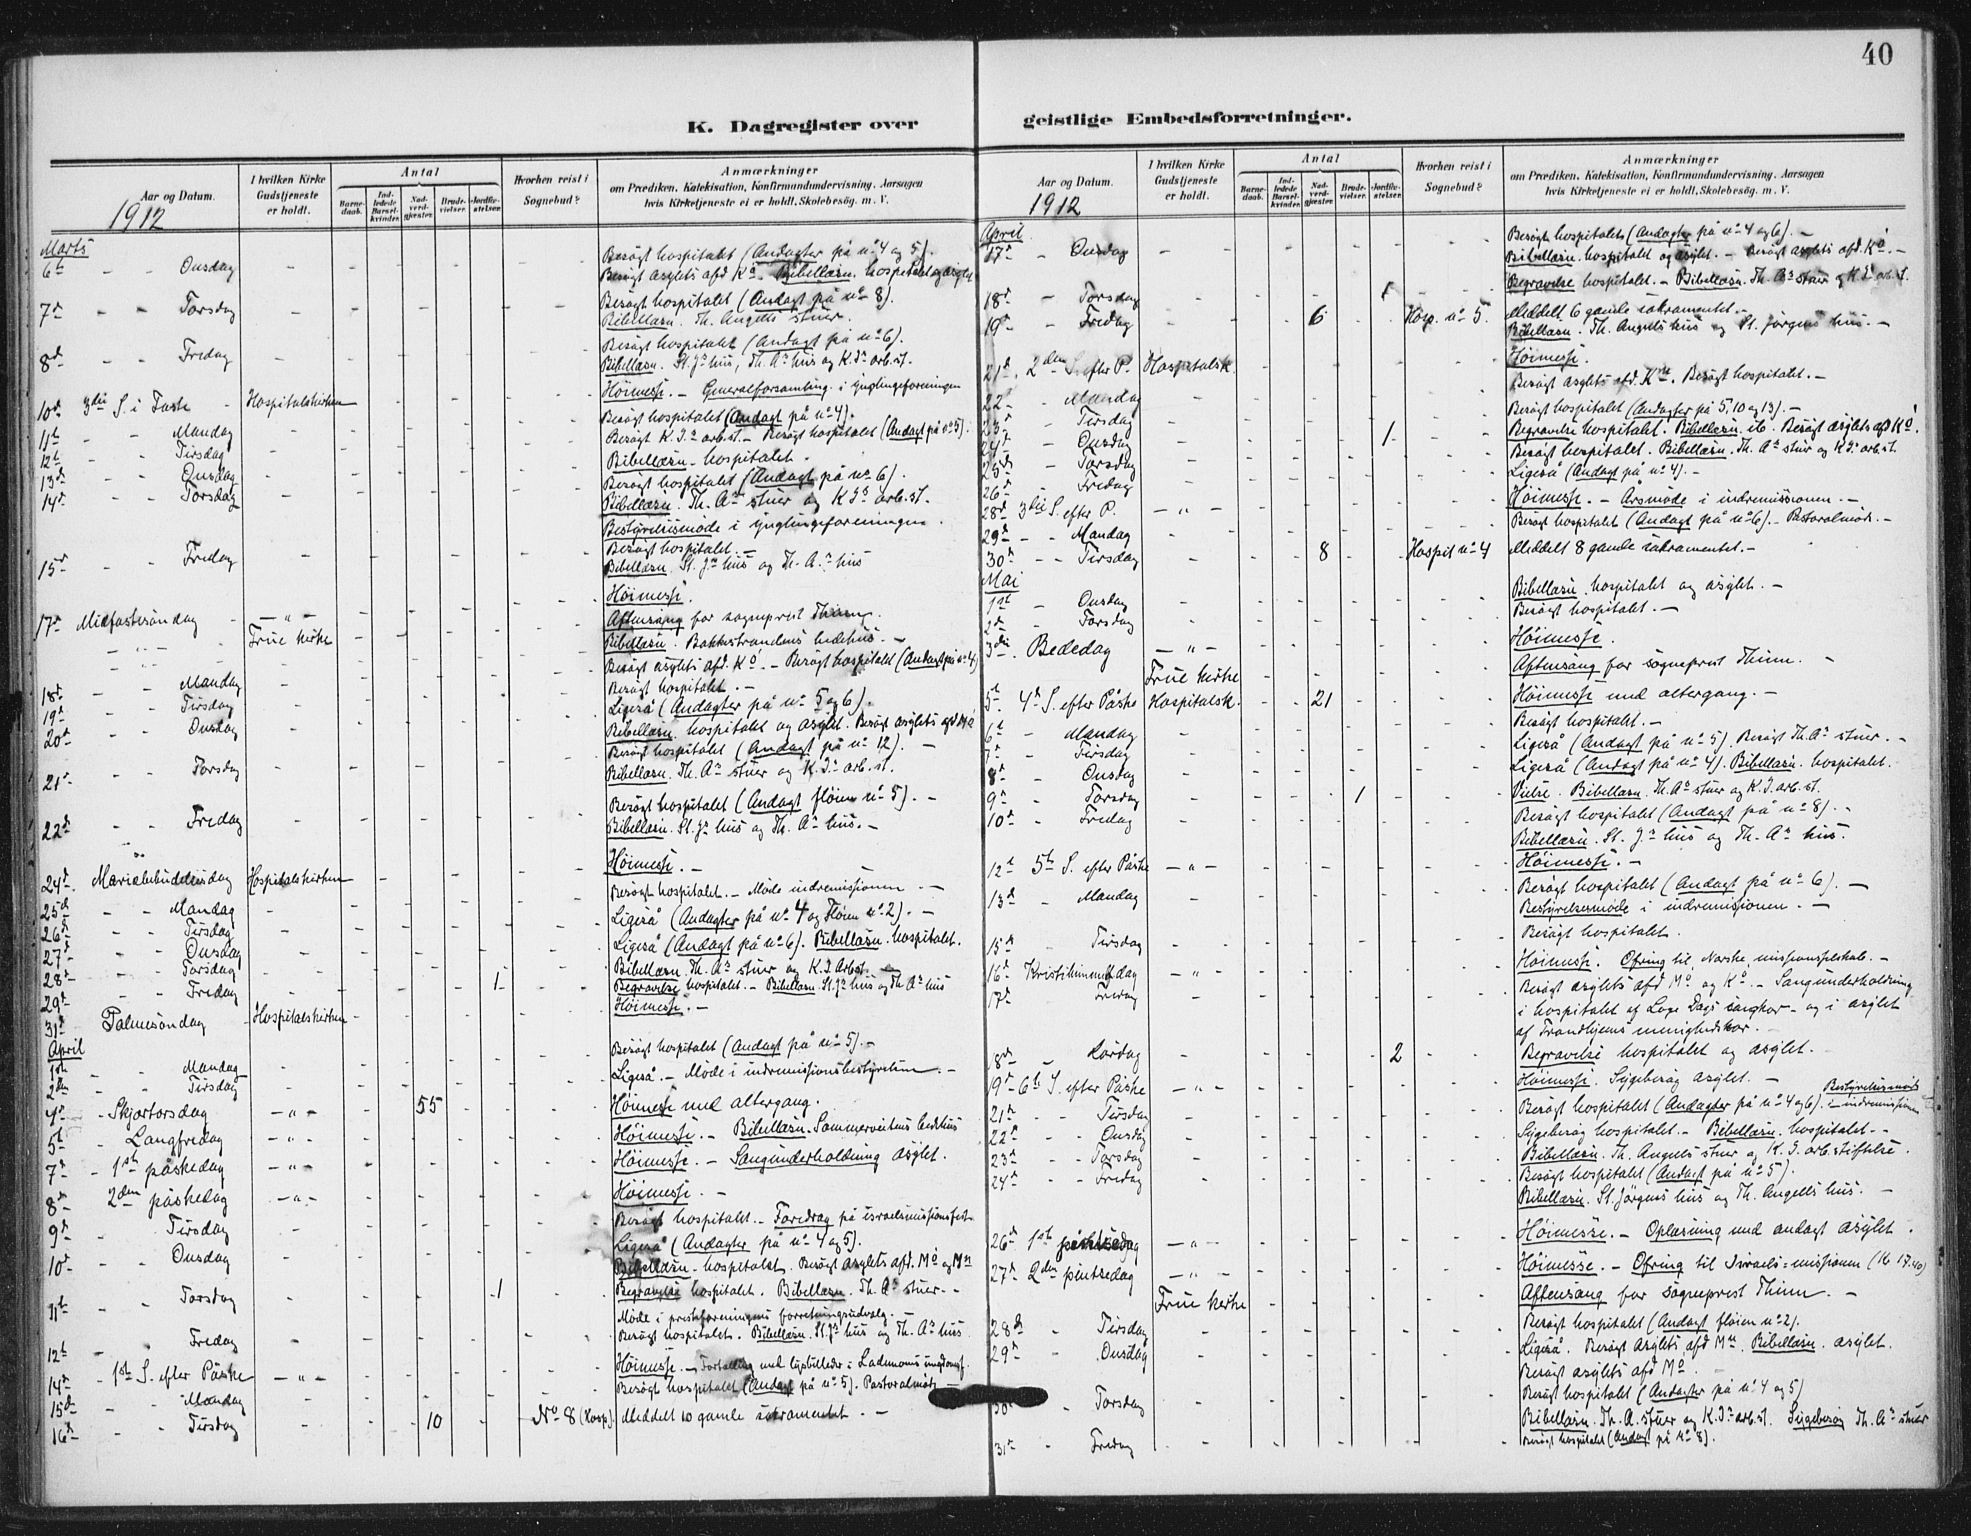 40
K. Dagregister over
Aar og Datum.
I hvilken Kirke Gudstjeneste er holdt.
Antal
Barnedaab.
Indledede Barselkvinder.
Nadverdgjester.
Brudevielser.
Jordfæstelser.
Hvorhen reist i Sognebud?
Anmærkninger
om Prædiken, Katekisation, Konfirmandundervisning. Aarsagen
hvis Kirketjeneste ei er holdt. Skolebesøg. m. V.
1912
Marts
6te - - Onsdag Besøgt hospitalet (Andagter på no 4 og 5).
Besøgt asylets afd. Kö. Bibellæsn. hospitalet og asylet
7de - - Torsdag Besøgt hospitalet (Andagt på no 8).
Bibellæsn. Th. Angells stuer.
8de - - Fredag Besøgt hospitalet (Andagt på no 6).
Bibellæsn. St. Jns hus, Th. As hus og K. Js arb.st.
10de 3die S. i Faste - Hospitalskirken Höimesse. - Generalforsamling i Ynglingeforeningen
11te - - Mandag Besøgt hospitalet (Andagt på no 4).
12te - - Tirsdag Besøgt K. Js arb.st. - Besøgt hospitalet (Andagt på no 5).
13de - - Onsdag Bibellæsn. hospitalet.
14de - - Torsdag Besøgt hospitalet (Andagt på no 6).
Bibellæsn. Th. As stuer og K. Js arb.st.
Bestyrelsesmöde i Ynglingeforeningen.
15de - - Fredag Besøgt hospitalet. -
Bibellæsn. St. Jns hus og Th. As hus
17de Midfastesöndag - - " - Höimesse.
- " - - Frue kirke Aftensang for sogneprest Thinn.
Bibellæsn. Bakkestrandens bedehus. -
18de - - Mandag Besøgt asylets afd. Kö. - Besøgt hospitalet (Andagt på no 4)
19de - - Tirsdag Besøgt hospitalet. -
20de - - Onsdag Ligeså (Andagter på no 5 og 6).
Bibellæsn. hospitalet og asylet. Besøgt asylets afd. Mö
21de - - Torsdag Besøgt hospitalet (Andagt på no 12). -
Bibellæsn. Th. As stuer og K. Js arb.st.
22de - - Fredag Besøgt hospitalet (Andagt fløien no 5). -
Bibellæsn. St. Jns hus og Th. As hus. -
24de. Mariæbudelsesdag Hospitalskirken Höimesse. -
25de - - Mandag Besøgt hospitalet. - Möde indremissionen. -
26de - - Tirsdag Ligeså (Andagter på no 4 og Fløien no 2). -
27de - - Onsdag Ligeså (Andagt på no 6). Bibellæsn. hospitalet.
28de - - Torsdag Bibellæsn. Th. As stuer og K. J. Arbst. -
29de - - Fredag 1 Begravelse hospitalet. - Bibellæsn. St. Jns hus og Th. As hus
31te Palmesöndag - Hospitalskirken Höimesse. -
April
1ste - - Mandag Besøgt hospitalet (Andagt på no 5). -
2den - - Tirsdag Ligeså. - Möde i indremissionsbestyrelsen. -
4de - Skjærtorsdag - " - 55 Höimesse med altergang.
5te - Langfredag - " - Höimesse. - Bibellæsn. Sommerveitens bedehus
7de - 1ste påskedag - " - Höimesse. - Sangunderholdning asylet.
8de 2den påskedag - " - Höimesse. -
9de - Tirsdag Besøgt hospitalet. - Foredrag på israelsmissionsfest.
10de - Onsdag Ligeså (Andagter på no 4 og 5).
Bibellæsn. hospitalet. Besøgt asylets afd. Mö og Mn
11te - Torsdag 1 Begravelse hospitalet. Bibellæsn. Th. As stuer. -
Möde i presteforeningens forretningsudvalg. -
12te - Fredag Besøgt hospitalet. Bibellæsn. St. Jns hus og Th. As hus
14de - 1ste S. efter Påske - " - Höimesse. - Fortælling med lysbilleder i Lademoens ungdomsf.
15de - Mandag Besøgt hospitalet (Andagt på no 5). Pastoralmöde
16de - - Tirsdag 10 No 8 (Hosp). Meddelt 10 gamle sakramentet. -
geistlige Embedsforretninger.
Aar og Datum.
I hvilken Kirke Gudstjeneste er holdt.
Antal
Barnedaab.
Indledede Barselkvinder.
Nadverdgjester.
Brudevielser.
Jordfæstelser.
Hvorhen reist i Sognebud?
Anmærkninger
om Prædiken, Katekisation, Konfirmandundervisning. Aarsagen
hvis Kirketjeneste ei er holdt. Skolebesøg. m. V.
1912
April
17de - Onsdag Besøgt hospitalet (Andagter på no 4 og 6). -
Bibellæsn. hospitalet og asylet. - Besøgt asylets afd. Kö. -
18de - Torsdag 1 Begravelse hospitalet. - Bibellæsn. Th. As stuer og K. Js arb.st.
19de - Fredag 6 Hosp. no 5. Meddelt 6 gamle sakramentet. -
Bibellæsn. Th. Angells hus og St. Jörgens hus. -
21de. 2den S. efter P. Hospitalsk. Höimesse.
22. - Mandag Besøgt asylets afd. Kn. Besøgt hospitalet. -
23de - Tirsdag Besøgt hospitalet (Andagter på 5, 10 og 13). -
24de - Onsdag 1 Begravelse hospitalet. Bibellæsn. ib. Besøgt asylets afd Kö.
25de - Torsdag Besøgt hospitalet. Bibellæsn. Th. As stuer og K. Js arb.st.
26de - Fredag Ligeså (Andagt på no 4). -
28de 3die S. efter P. - " - Höimesse. - Årsmöde i indremissionen. -
29de - - Mandag Besøgt hospitalet (Andagt på no 6). - Pastoralmöde. -
30te - - Tirsdag 8 Hospit no 4 Meddelt 8 gamle sakramentet. -
Mai
1ste - Onsdag Bibellæsn. hospitalet og asylet. -
2de - Torsdag Besøgt hospitalet. -
3die. Bededag - " - Höimesse.
Frue kirke Aftensang for sogneprest Thinn. -
5te. 4de S. efter Påske Hospitalsk. 21 Höimesse med altergang. -
6te - Mandag Besøgt hospitalet. -
7de - Tirsdag Ligeså (Andagt på no 5). Besøgt Th. As stuer. -
8de - Onsdag Ligeså (Andagt på no 4). Bibellæsn. hospitalet.
9de - Torsdag 1 Vielse. Bibellæsn. Th. As stuer og K. J. arb.st.
10de - Fredag Besøgt hospitalet (Andagt på no 8). -
Bibellæsn. St. Jns hus og Th. As hus.
12te 5te S. efter Påske - " - Höimesse. -
13de - Mandag Besøgt hospitalet (Andagt på no 6). -
Bestyrelsesmöde i indremissionen. -
15de - Tirsdag Besøgt hospitalet.
16de Kristihimmelfdag - " - Höimesse. Ofring til Norske missionsselskab. -
17de Fredag Besøgt asylets afd Mö og Kö. - Sangunderholdning
i hospitalet af Loge Dags sangkor - og i asylet
af Trondhjems menighedskor. -
18de - Lördag 2 Begravelse hospitalet og asylet. -
19de 6te S. efter Påske - " - Höimesse. Sygebesøg asylet. -
21de - - Tirsdag Besøgt hospitalet (Andagter på no 4 og 6). - Bestyrelsesmöde indremissionen
22de - - Onsdag Sygebesøg hospitalet. - Bibellæsn. hospitalet. -
23de - - Torsdag Bibellæsn. Th. Angells stuer og K. J. arb.stiftelse.
24de - - Fredag Besøgt hospitalet (Andagt på no 5).
Bibellæsn. St. Jörgens hus og Th. Angells hus. -
26de 1ste pintsedag - " - Höimesse. - Oplæsning med andagt asylet.
27de 2den pintsedag - " - Höimesse. - Ofring til Israels-missionen (Kr 17.40)
Frue kirke Aftensang for sogneprest Thinn. -
28de - Tirsdag Besøgt hospitalet (Andagt fløien no 2).
29de - Onsdag Ligeså. Besøgt Asylets afd Mn. Bibellæsn. asylet.
Besøgt asylets afd Mö.
30te - Torsdag Besøgt hospitalet (Andagter på no 4 og 5)
Bibellæsn. Th. A. stuer og K. Js arb.st. Sygebesøg Th. As stuer
31te - Fredag Besøgt hospitalet (Andagt på no 8).